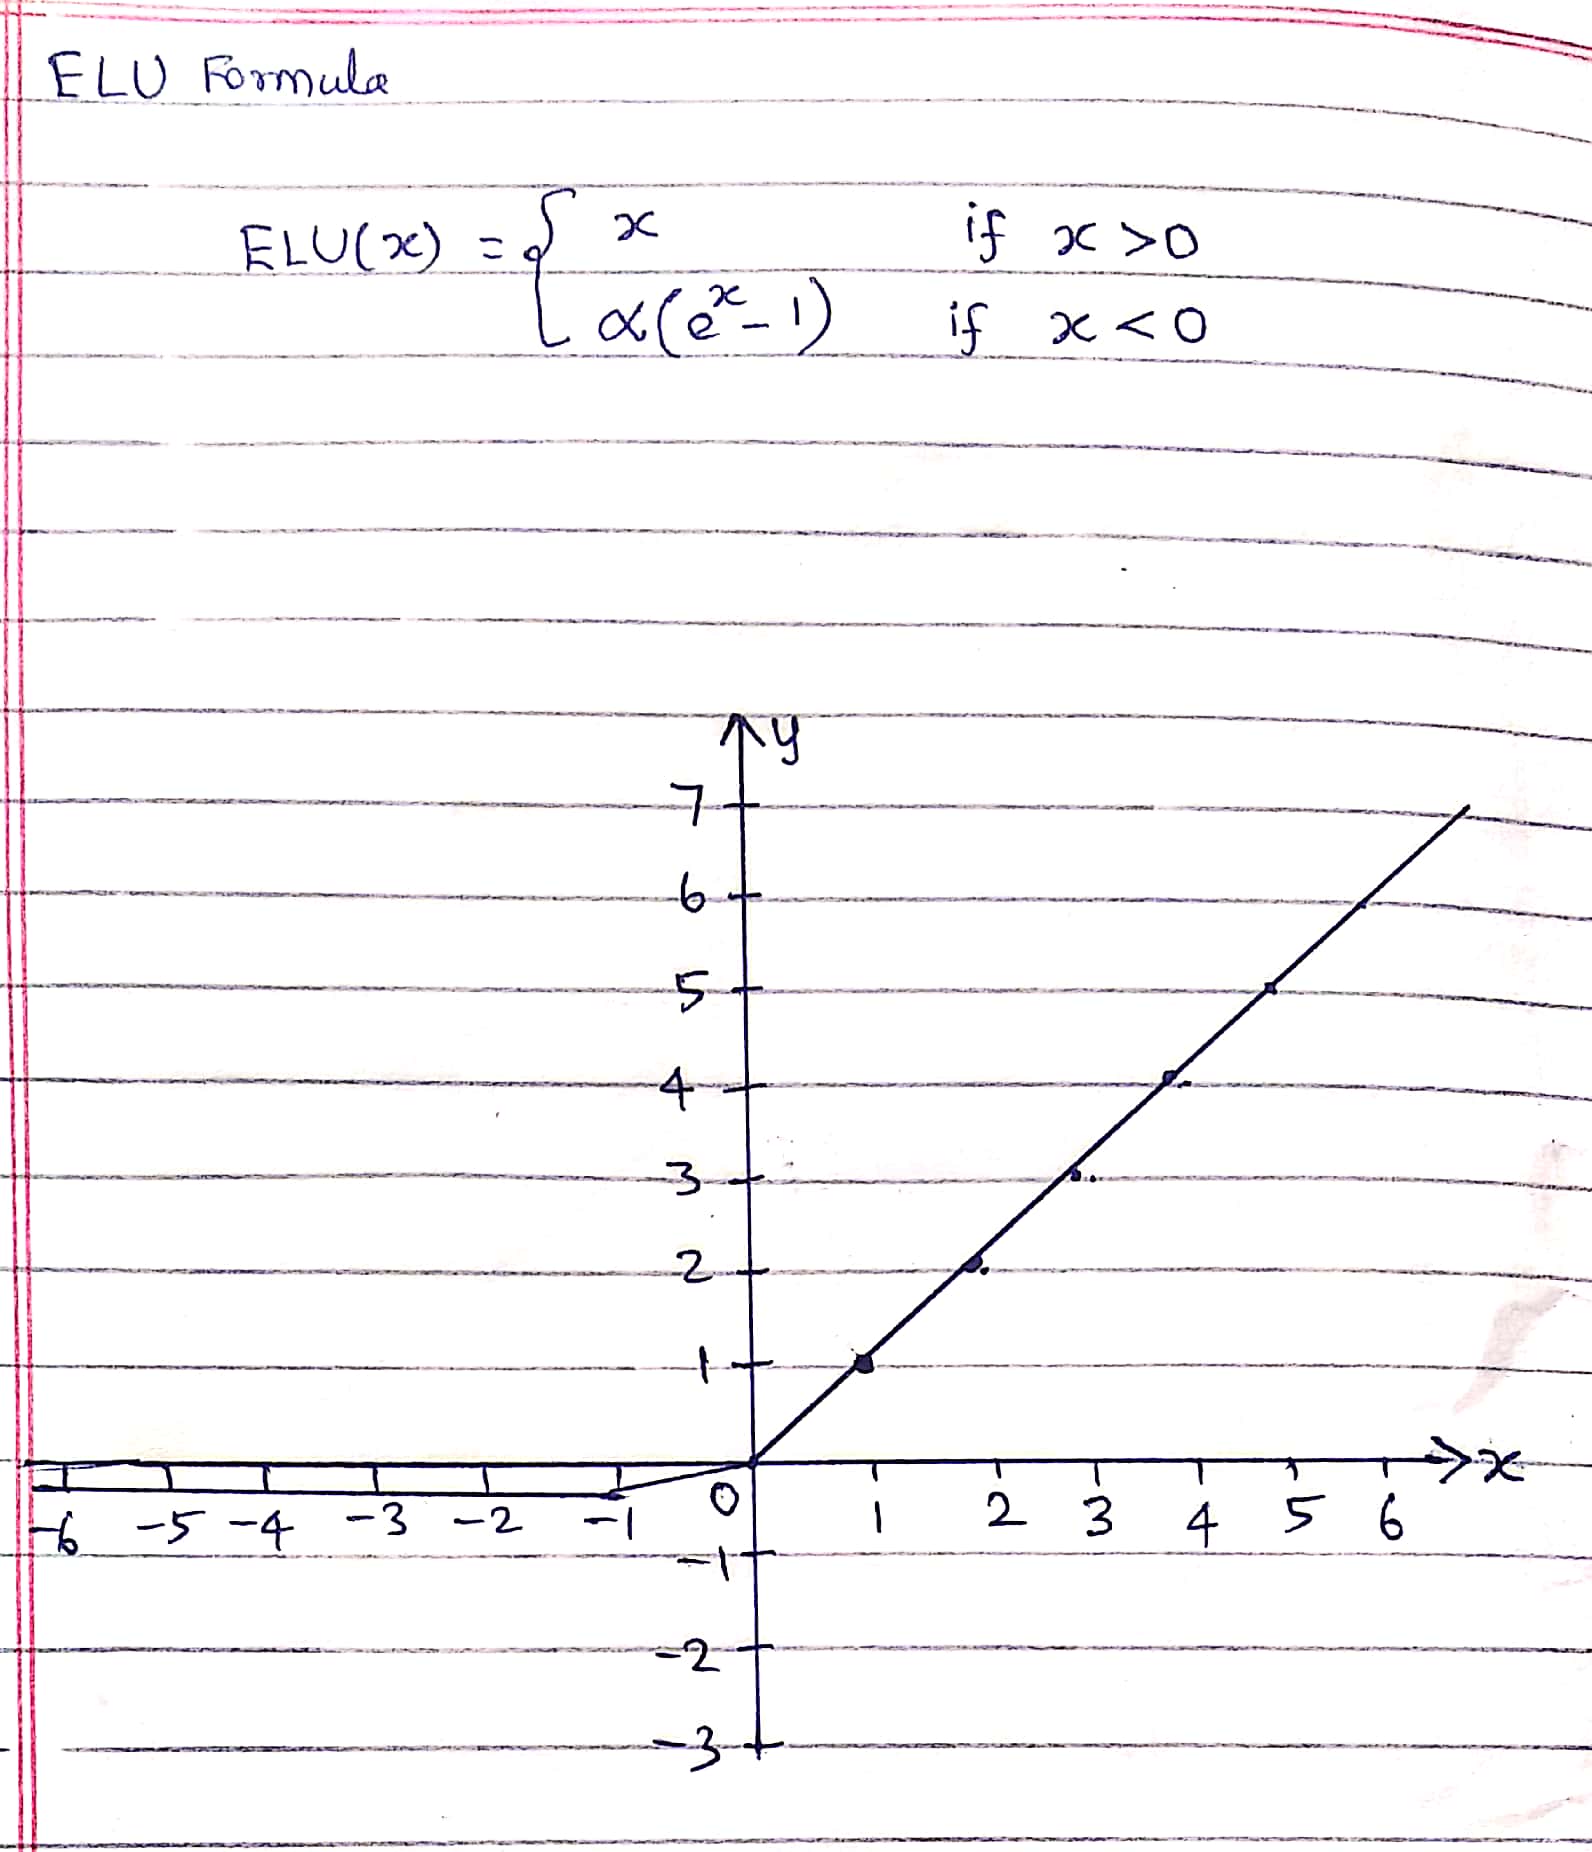 ELU Formula
ELU(x) = { x if x >0
α(eˣ - 1) if x < 0
y
7
6
5
4
3
2
1
x
-6 -5 -4 -3 -2 -1 0 1 2 3 4 5 6
-1
-2
-3